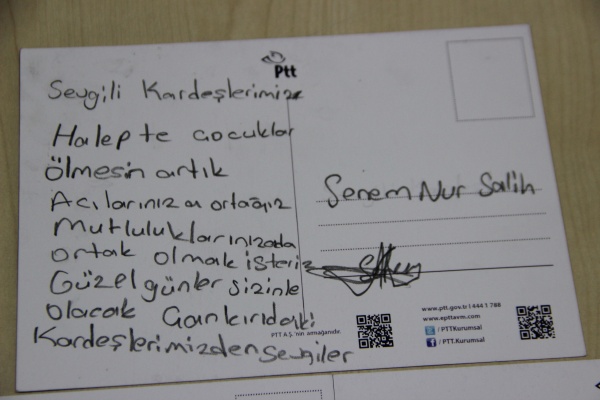 Ptt
Sevgili Kardeşlerimize
Halep te çocuklar
ölmesin artık
Acılarınıza ortağız
Mutluluklarınızada
ortak olmak isteriz
Güzel günler sizinle
olacak Çankırıdaki
Kardeşlerimizden Sevgiler
Senem Nur Salih
PTT A.Ş.'nin armağanıdır.
www.ptt.gov.tr I 444 1 788
www.epttavm.com
/PTTKurumsal
/PTT.Kurumsal